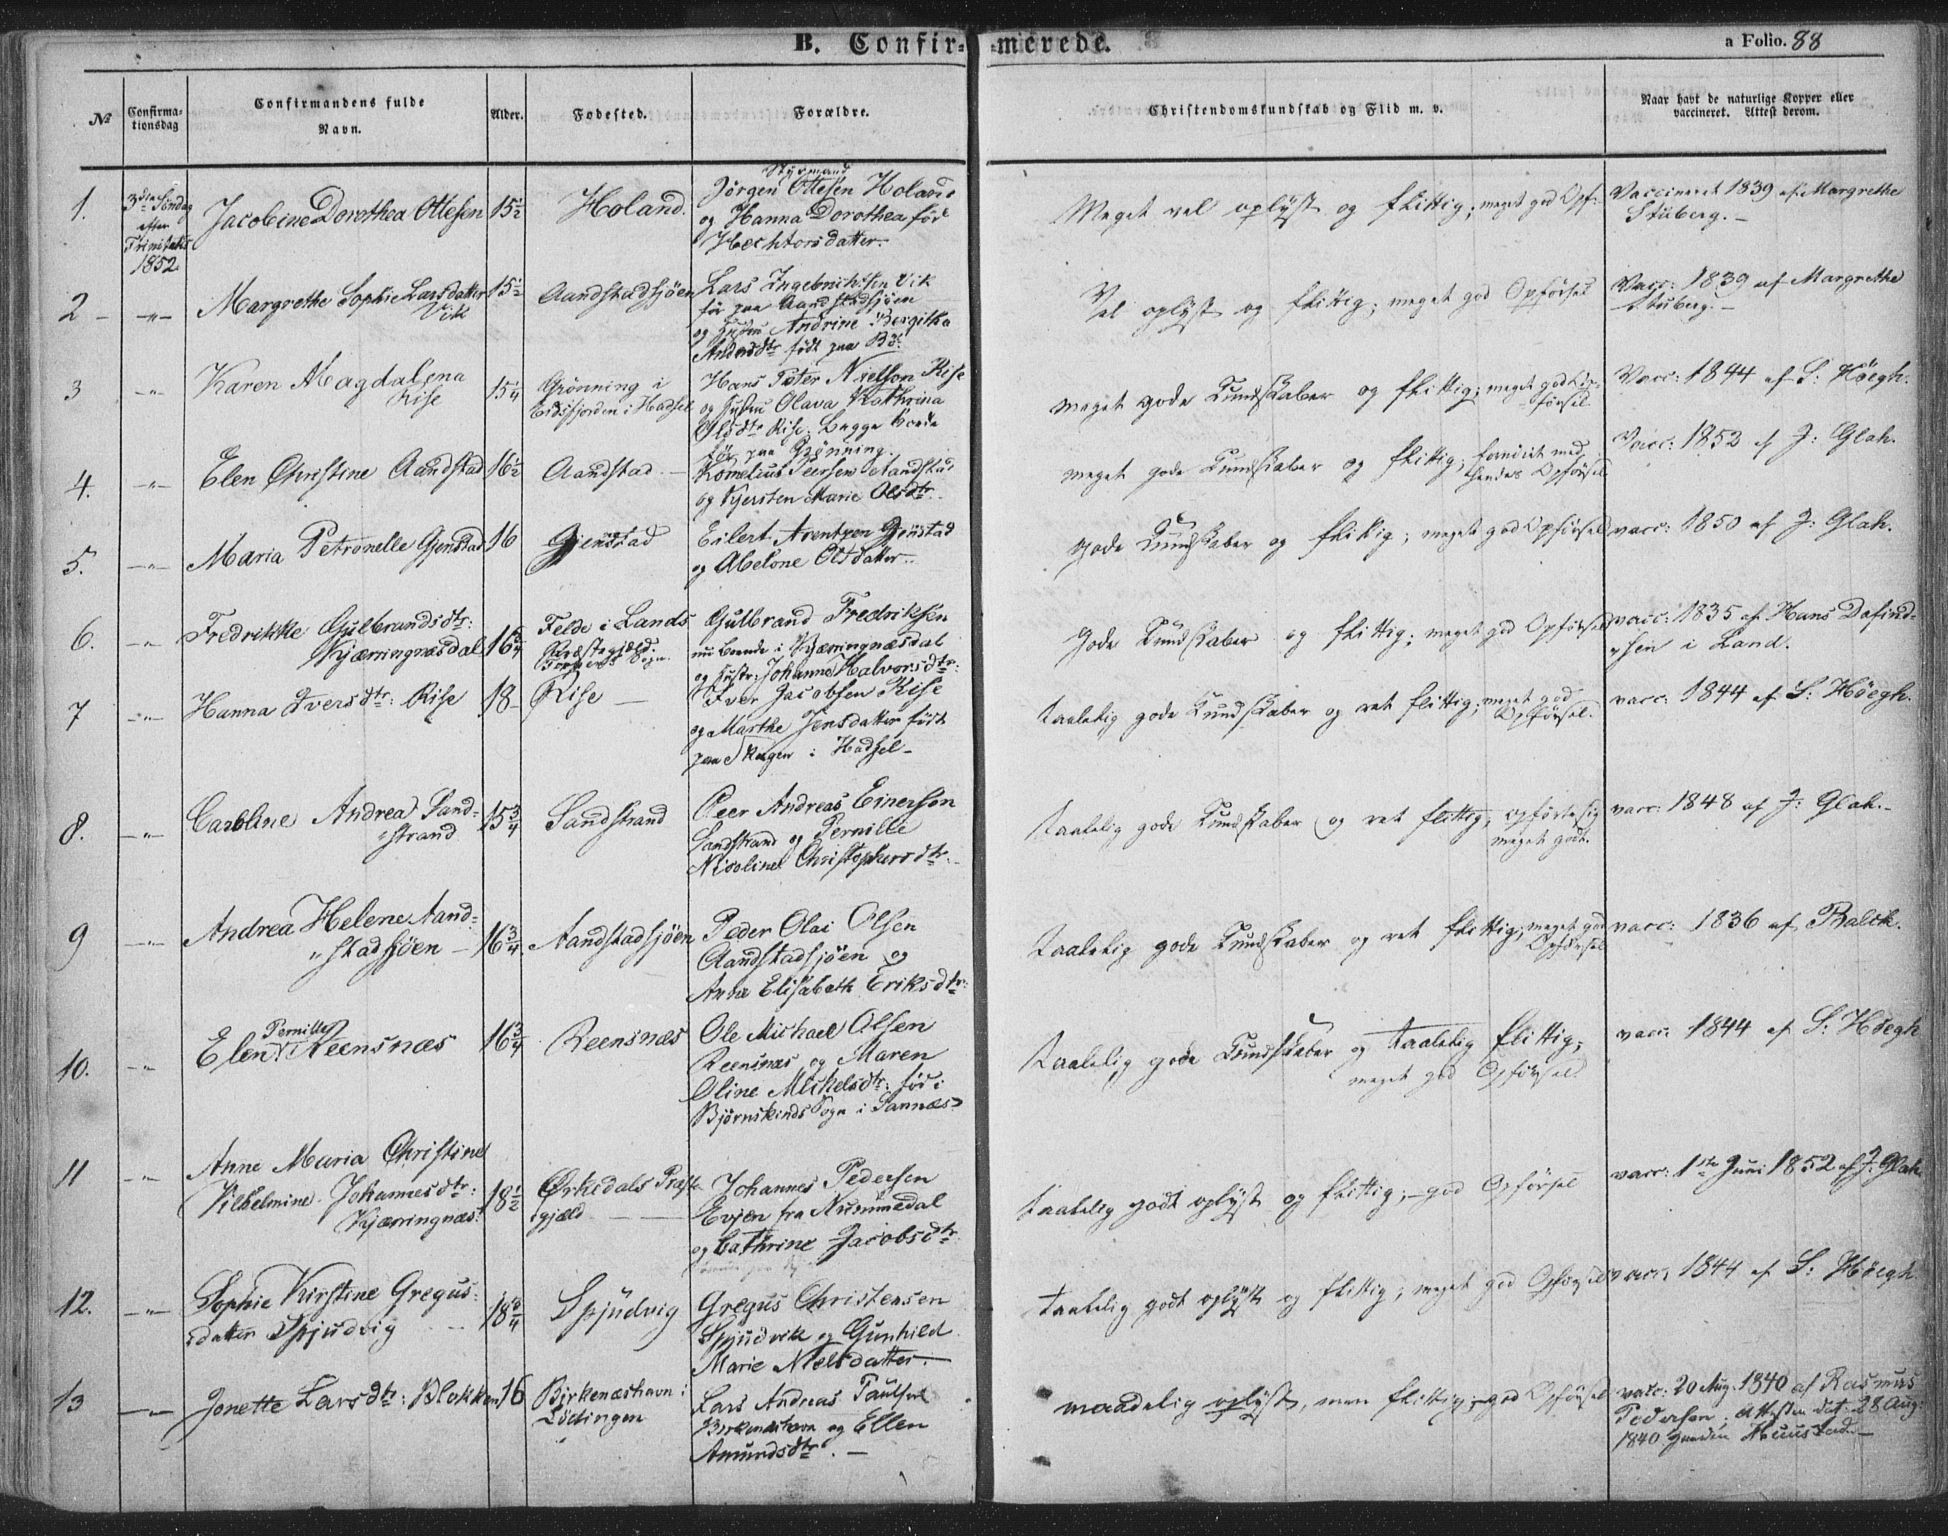 B. Confir- -merede.
a Folio. 88
№
Confirma-
tionsdag
Confirmandens fulde
Navn.
Alder.
Fødested.
Forældre.
Christendomskundskab og Flid m. v.
Naar havt de naturlige Kopper eller
vaccineret. Attest derom.
1.
3die Søndag
efter
Trinitatis
1852
Jacobine Dorothea Ottesen
15½
Holand.
Styrmand
Jørgen Ottesen Holand
og Hanna Dorothea fød
Hechtorsdatter.
Meget vel oplyst og flittig; meget god Opf:
Vaccineret 1839 af Margrethe
Stuberg.-
2 -
-"-
Margrethe Sophie Larsdatter
Vik
15½
Aandstadsjøen
Lars Ingebrichtsen Vik
før paa Aandstadsjøen
og Hustru Andrine Bergitha
Andersdtr født paa Bø.
Vel oplyst og flittig; meget god Opførsel
Vacc: 1839 af Margrethe
Stuberg.-
3
-"-
Karen Magdalena
Rise
15¼
Grønning i
Eidsfjorden i Hadsel
Hans Peter Nielsen Rise
og Hustru Olava Kathrina
Olsdtr Rise. Begge boede
før paa Grønning.
meget gode Kundskaber og flittig; meget god Op-
førsel
Vacc: 1844 af S: Høegh.
4.
-"-
Elen Christine Aandstad
16½
Aandstad. -
Kornelius Peersen Aandstad
og Kjersten Marie Olsdtr.
meget gode Kundskaber og flittig; fornøiet med
hendes Opførsel
Vacc: 1852 af J: Glah.
5.
-"-
Maria Petronelle Gjenstad
16
Gjenstad
Eilert Arentzen Gjenstad
og Abelone Olsdatter..
gode Kundskaber og flittig; meget god Opførsel
vacc: 1850 af J: Glah.
6.
-"-
Fredrikke Gulbrandsdtr:
Kjærringnæsdal
16¾
Felde i Lands
Præstegjeld.
Sogn.
Gulbrand Fredriksen
nu boende i Kjærringnæsdal
og Hustr: Johanne Halvorsdtr:
gode Kundskaber og flittig; meget god Opførsel
vacc: 1835 af Hans Dafind-
"sen i Land.
7
-"-
Hanna Iversdtr: Rise
18-
Rise -
Iver Jacobsen Rise
og Marthe Jensdatter født
paa Skagen i Hadsel-
taalelig gode Kundskaber og ret flittig; meget god
Opførsel.
vacc: 1844 af S: Høegh.
8.
-"-
Caroline Andrea Sand-
"strand
15¾
Sandstrand
Peer Andreas Einersen
Sandstrand og Pernille
Nicoline Christophersdtr.
taalelig gode Kundskaber og ret flittig; opførte sig
meget godt.
vacc: 1848 af J: Glah.-
9
-"-
Andrea Helene Aand-
"stadsjøen -
16¾
Aandstadsjøen
Peder Olai Olsen
Aandstadsjøen og
Anna Elisabeth Eriksdtr:
taalelig gode Kundskaber og ret flittig; meget god
Opførsel
vacc: 1836 af Balck.
10.
-"-
Pernille
Elen Reensnæs
16¾
Reensnæs
Ole Michael Olsen
Reensnæs og Maren
Oline Mikelsdtr: fød i
Bjørnskinds Sogn i Sannæs
taalelig gode Kundskaber og taalelig flittig;
meget god Opførsel
vacc: 1844 af S: Høegh
11
-"-
Anne Maria Christine
Vilhelmine Johannesdtr:
Kjærringnæs:
18½
Ørkedals Præste-
gjæld - -
Johannes Pedersen
Evjen fra Nummedal
og Cathrine Jacobsdtr
taalelig godt oplyst og flittig; - god Opførsel
vacc: 1ste Juni 1852 af J: Glah
12.
-"-
Sophie Kirstine Gregus-
"datter Spjudvig
18¾
Spjudvig
Gregus Christensen
Spjudvik og Gunhild
Marie Nielsdatter.-
taalelig godt oplyst og flittig; meget god Opførsel
vacc: 1844 af S: Høegh
13
-"-
Jonette Larsdtr: Blokken
16
Birkenæshavn i
Lødingen
Lars Andreas Paulsen
Birkenæshavn og Ellen
Amundsdtr. -
maadelig oplyst, men flittig; god Opførsel
vacc: 20 Aug: 1840 af Rasmus
Pedersen; Attesten det: 28 Aug:
1840